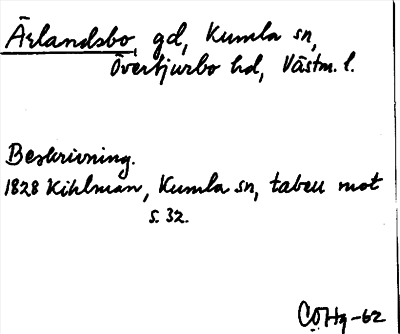 Ärlandsbo, gd, Kumla sn,
Övertjurbo hd, Västm. l.
Beskrivning.
1828 Kihlman, Kumla sn, tabell mot
s. 32.
COHg-62